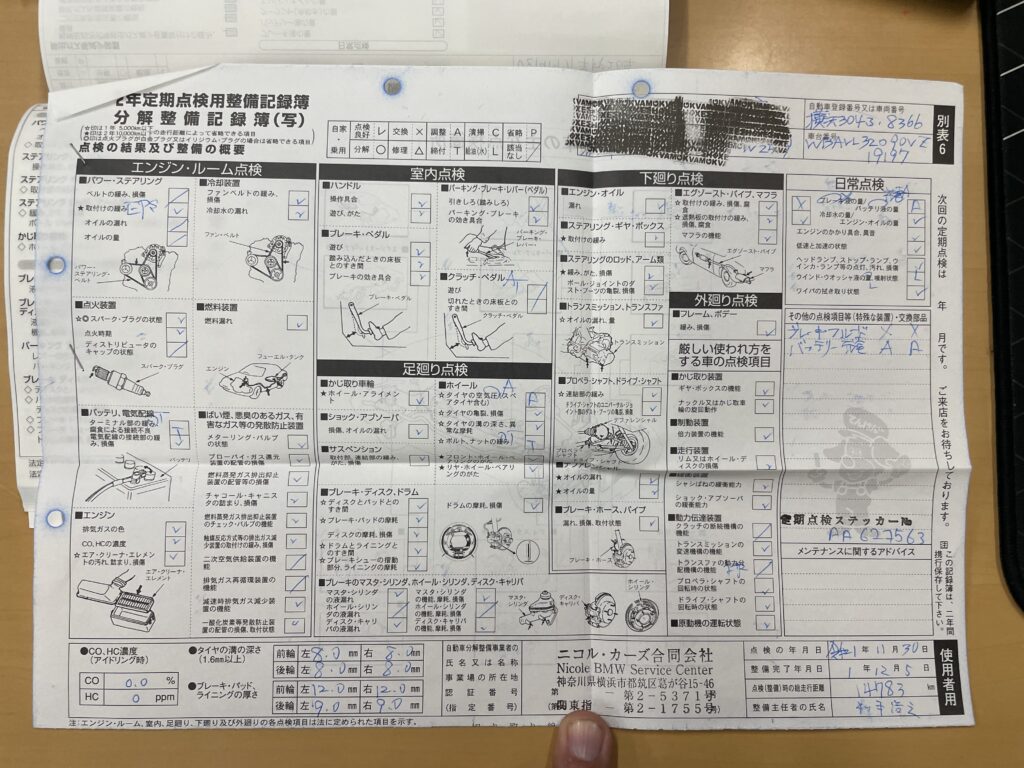 2年定期点検用整備記録簿
分解整備記録簿(写)
★印は1年 5,000km以下
☆印は2年 10,000km以下の走行距離によって省略できる項目
◎印は点火プラグが白金プラグ又はイリジウム・プラグの場合は省略できる項目
点検の結果及び整備の概要
自家 点検良好 レ 交換 × 調整 A 清掃 C 省略 P
乗用 分解 ○ 修理 △ 締付 T 給油(水) L 該当なし
自動車登録番号又は車両番号
3043.8366
車台番号
別表6
エンジン・ルーム点検
■パワー・ステアリング
ベルトの緩み、損傷
★取付けの緩み EPS
オイルの漏れ
オイルの量
パワー・ステアリング・ベルト
■冷却装置
ファンベルトの緩み、損傷
冷却水の漏れ
ファン・ベルト
■点火装置
☆◎スパーク・プラグの状態
点火時期
ディストリビュータのキャップの状態
スパーク・プラグ
■燃料装置
燃料漏れ
フューエル・タンク
エンジン
■バッテリ、電気配線
ターミナル部の緩み、腐食による接続不良
電気配線の接続部の緩み、損傷
バッテリ
■エンジン
排気ガスの色
CO、HCの濃度
☆エア・クリーナ・エレメントの汚れ、詰まり、損傷
エア・クリーナ・エレメント
■ばい煙、悪臭のあるガス、有害なガス等の発散防止装置
メターリング・バルブの状態
ブローバイ・ガス還元装置の配管の損傷
燃料蒸発ガス排出抑止装置の配管等の損傷
チャコール・キャニスタの詰まり、損傷
燃料蒸発ガス排出抑止装置のチェック・バルブの機能
触媒反応方式等の排出ガス減少装置の取付けの緩み、損傷
二次空気供給装置の機能
排気ガス再循環装置の機能
減速時排気ガス減少装置の機能
一酸化炭素等発散防止装置の配管の損傷、取付状態
室内点検
■ハンドル
操作具合
遊び、がた
■ブレーキ・ペダル
遊び
踏み込んだときの床板とのすき間
ブレーキの効き具合
ブレーキ・ペダル
■パーキング・ブレーキ・レバー(ペダル)
引きしろ(踏みしろ)
パーキング・ブレーキの効き具合
パーキング・ブレーキ・レバー
■クラッチ・ペダル
遊び
切れたときの床板とのすき間
クラッチ・ペダル
足廻り点検
■かじ取り車輪
☆ホイール・アライメント
■ショック・アブソーバ
損傷、オイルの漏れ
■サスペンション
取付部、連結部の緩み、がた、損傷
■ホイール
☆タイヤの空気圧(スペアタイヤ含む)
☆タイヤの亀裂、損傷
☆タイヤの溝の深さ、異常な摩耗
☆ボルト、ナットの緩み
☆フロント・ホイール・ベアリングのがた
☆リヤ・ホイール・ベアリングのがた
■ブレーキ・ディスク、ドラム
☆ディスクとパッドとのすき間
☆ブレーキ・パッドの摩耗
ディスクの摩耗、損傷
☆ドラムとライニングとのすき間
☆ブレーキシューの摺動部分、ライニングの摩耗
ドラムの摩耗、損傷
■ブレーキのマスタ・シリンダ、ホイール・シリンダ、ディスク・キャリパ
マスタ・シリンダの液漏れ
ホイール・シリンダの液漏れ
ディスク・キャリパの液漏れ
マスタ・シリンダの機能、摩耗、損傷
ホイール・シリンダの機能、摩耗、損傷
ディスク・キャリパの機能、摩耗、損傷
マスタ・シリンダ
ディスク・キャリパ
ホイール・シリンダ
下廻り点検
■エンジン・オイル
漏れ
■ステアリング・ギヤ・ボックス
★取付けの緩み
■ステアリングのロッド、アーム類
★緩み、がた、損傷
ボール・ジョイントのダスト・ブーツの亀裂、損傷
■トランスミッション、トランスファ
☆オイルの漏れ、量
トランスミッション
■プロペラ・シャフト、ドライブ・シャフト
☆連結部の緩み
ドライブ・シャフトのユニバーサル・ジョイント部のダスト・ブーツの亀裂、損傷
デファレンシャル
☆オイルの漏れ
★オイルの量
■エグゾースト・パイプ、マフラ
☆取付けの緩み、損傷、腐食
☆遮熱板の取付けの緩み、損傷、腐食
マフラの機能
エグゾースト・パイプ
マフラ
■ブレーキ・ホース、パイプ
漏れ、損傷、取付状態
ブレーキ・ホース
外廻り点検
■フレーム、ボデー
緩み、損傷
厳しい使われ方をする車の点検項目
■かじ取り装置
ギヤ・ボックスの機能
ナックル又はかじ取車輪の旋回動作
■制動装置
倍力装置の機能
■走行装置
リム又はホイール・ディスクの損傷
■緩衝装置
シャシばねの緩衝能力
ショック・アブソーバの緩衝能力
■動力伝達装置
クラッチの断続機構の機能
トランスミッションの変速機構の機能
トランスファの動力分配機構の機能
プロペラ・シャフトの回転時の状態
ドライブ・シャフトの回転時の状態
■原動機の運転状態
日常点検
ブレーキ液の量
バッテリ液の量
冷却水の量
エンジン・オイルの量
エンジンのかかり具合、異音
低速と加速の状態
ヘッドランプ、ストップ・ランプ、ウインカ・ランプ等の点灯、汚れ、損傷
ウインド・ウオッシャ液の量、噴射状態
ワイパの拭き取り状態
その他の点検項目等(特殊な装置)・交換部品
ブレーキフルード X X
バッテリー充電 A A
定期点検ステッカー№
AA627563
メンテナンスに関するアドバイス
次回の定期点検は 年 月です。ご来店をお待ちしております。
この記録簿は、二年間携行保存して下さい。
●CO、HC濃度(アイドリング時)
CO 0.0 %
HC 0 ppm
●タイヤの溝の深さ(1.6mm以上)
前輪 左 8.0 mm 右 8.0 mm
後輪 左 8.0 mm 右 8.0 mm
●ブレーキ・パッド、ライニングの厚さ
前輪 左 12.0 mm 右 12.0 mm
後輪 左 9.0 mm 右 9.0 mm
自動車分解整備事業者の
氏名又は名称
事業場の所在地
認証番号
(指定番号)
ニコル・カーズ合同会社
Nicole BMW Service Center
神奈川県横浜市都筑区葛が谷15-46
第2-5371号
関東指 第2-1755号
点検の年月日 1年11月30日
整備完了年月日 1年12月5日
点検(整備)時の総走行距離 14783 km
整備主任者の氏名
使用者用
注:エンジン・ルーム、室内、足廻り、下廻り及び外廻りの各点検項目は法に定められた項目を示す。